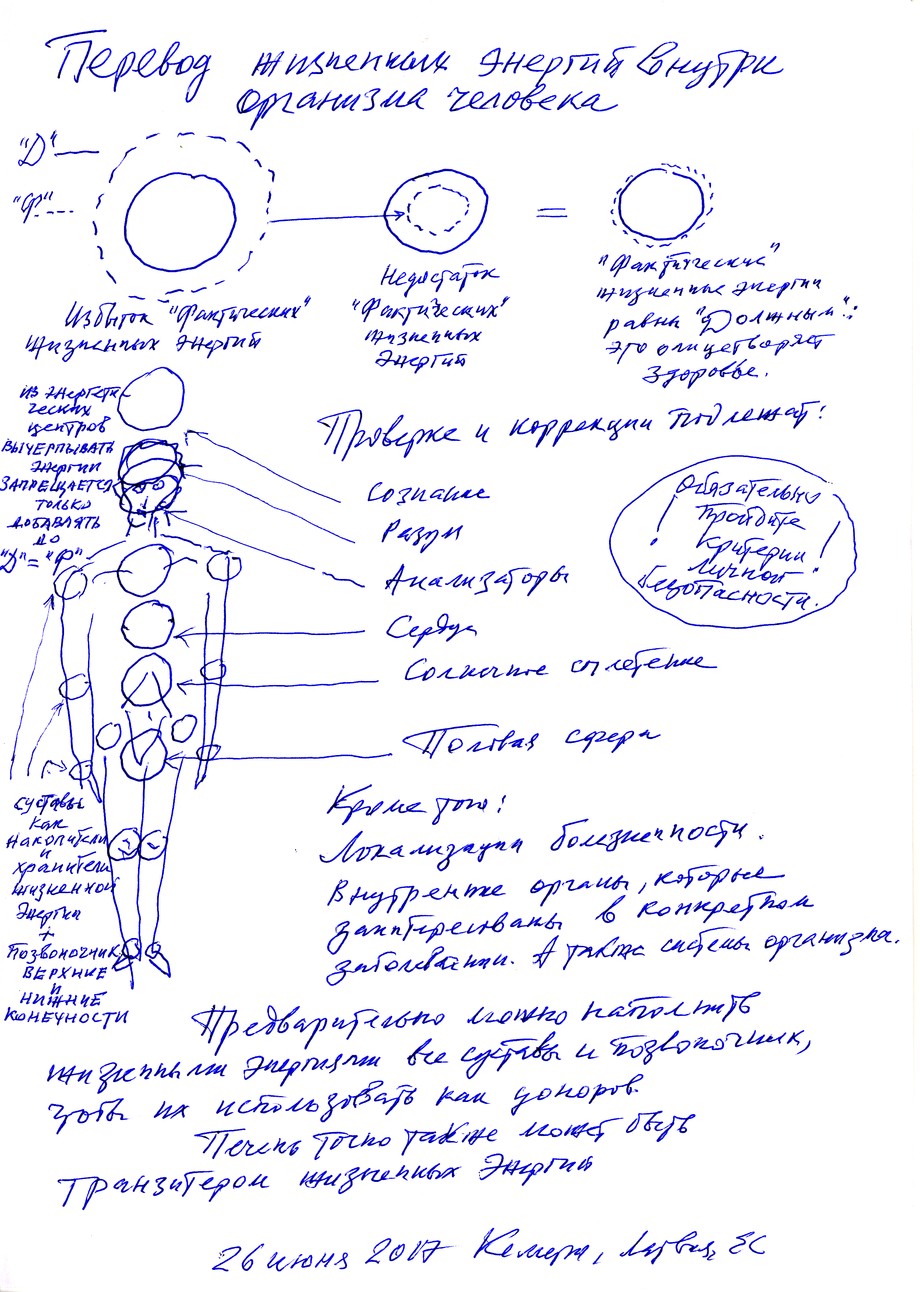 Перевод жизненных энергий внутри
организма человека
"Д"
"Ф"
Избыток "Фактических"
жизненных энергий
Недостаток
"Фактических"
жизненных
энергий
=
"Фактические"
жизненные энергии
равны "Должным":
это олицетворяет
здоровье.
из энергети
ческих
центров
ВЫЧЕРПЫВАТЬ
энергии
ЗАПРЕЩАЕТСЯ
только
ДОБАВЛЯТЬ
до
"Д" = "Ф"
Проверке и коррекции подлежат:
Сознание
Разум
Анализаторы
Сердце
Солнечное сплетение
Половая сфера
! Обязательно
пройдите
Критерии !
личной
безопасности.
суставы
как
накопители
и
хранители
жизненной
энергии
+
Позвоночник
ВЕРХНИЕ
и
НИЖНИЕ
КОНЕЧНОСТИ
Кроме того:
Локализации болезненности.
Внутренние органы, которые
заинтересованы в конкретном
заболевании. А также системы организма.
Предварительно можно наполнить
жизненными энергиями все суставы и позвоночник,
чтобы их использовать как доноров.
Печень точно также может быть
транзитером жизненных энергий
26 июня 2017 Кемери, Латвия, ЕС